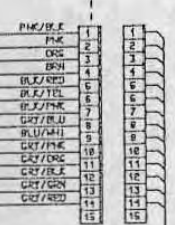 PNK/BLK 1 1
PNK 2 2
ORG 3 3
BRN 4 4
BLK/RED 5 5
BLK/YEL 6 6
BLK/PNK 7 7
GRY/BLU 8 8
BLU/WHI 9 9
GRY/PNK 10 10
GRY/ORG 11 11
GRY/BLK 12 12
GRY/GRN 13 13
GRY/RED 14 14
15 15